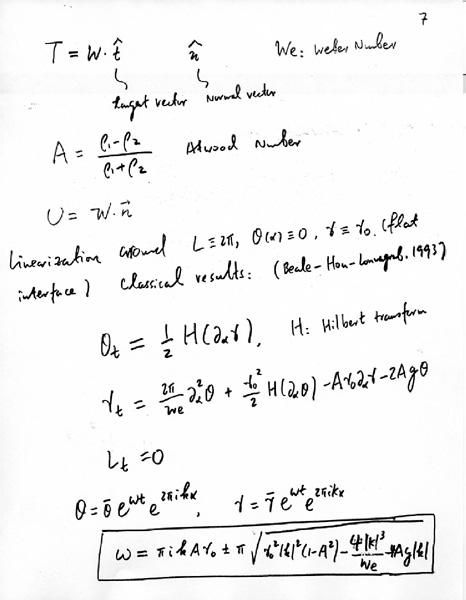 7
T = W · t̂    n̂    We: Weber Number
tangent vector    normal vector
A = (ρ₁-ρ₂)/(ρ₁+ρ₂)    Atwood Number
U = W · n⃗
Linearization around L ≡ 2π, θ(α) ≡ 0, γ ≡ γ₀. (flat
interface) Classical results: (Beale-Hou-Lowengrub, 1993)
θ_t = 1/2 H(∂_αγ),    H: Hilbert transform
γ_t = 2π/We ∂_α²θ + γ₀²/2 H(∂_αθ) - Aγ₀∂_αγ - 2Agθ
L_t = 0
θ = θ̄ e^{wt} e^{2πikx},    γ = γ̄ e^{wt} e^{2πikx}
ω = πikAγ₀ ± π √(γ₀²|k|²(1-A²) - 4π|k|³/We - 4Ag|k|)